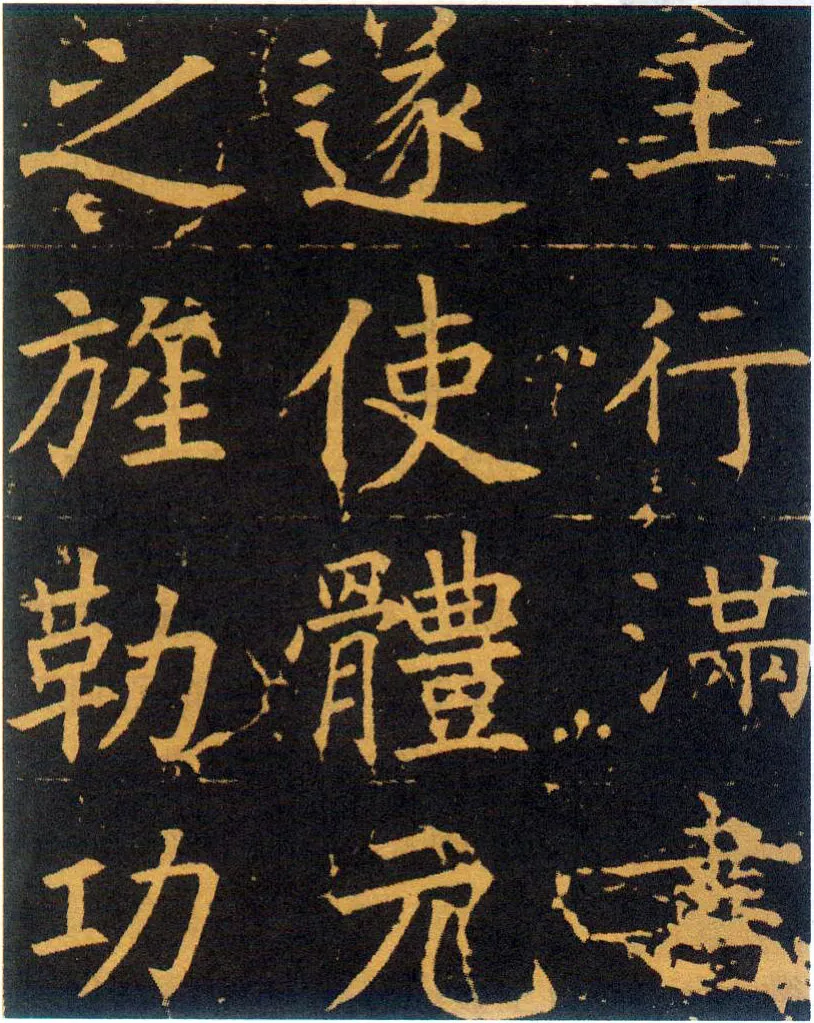 主行滿書
遂使體元
之旌勒功